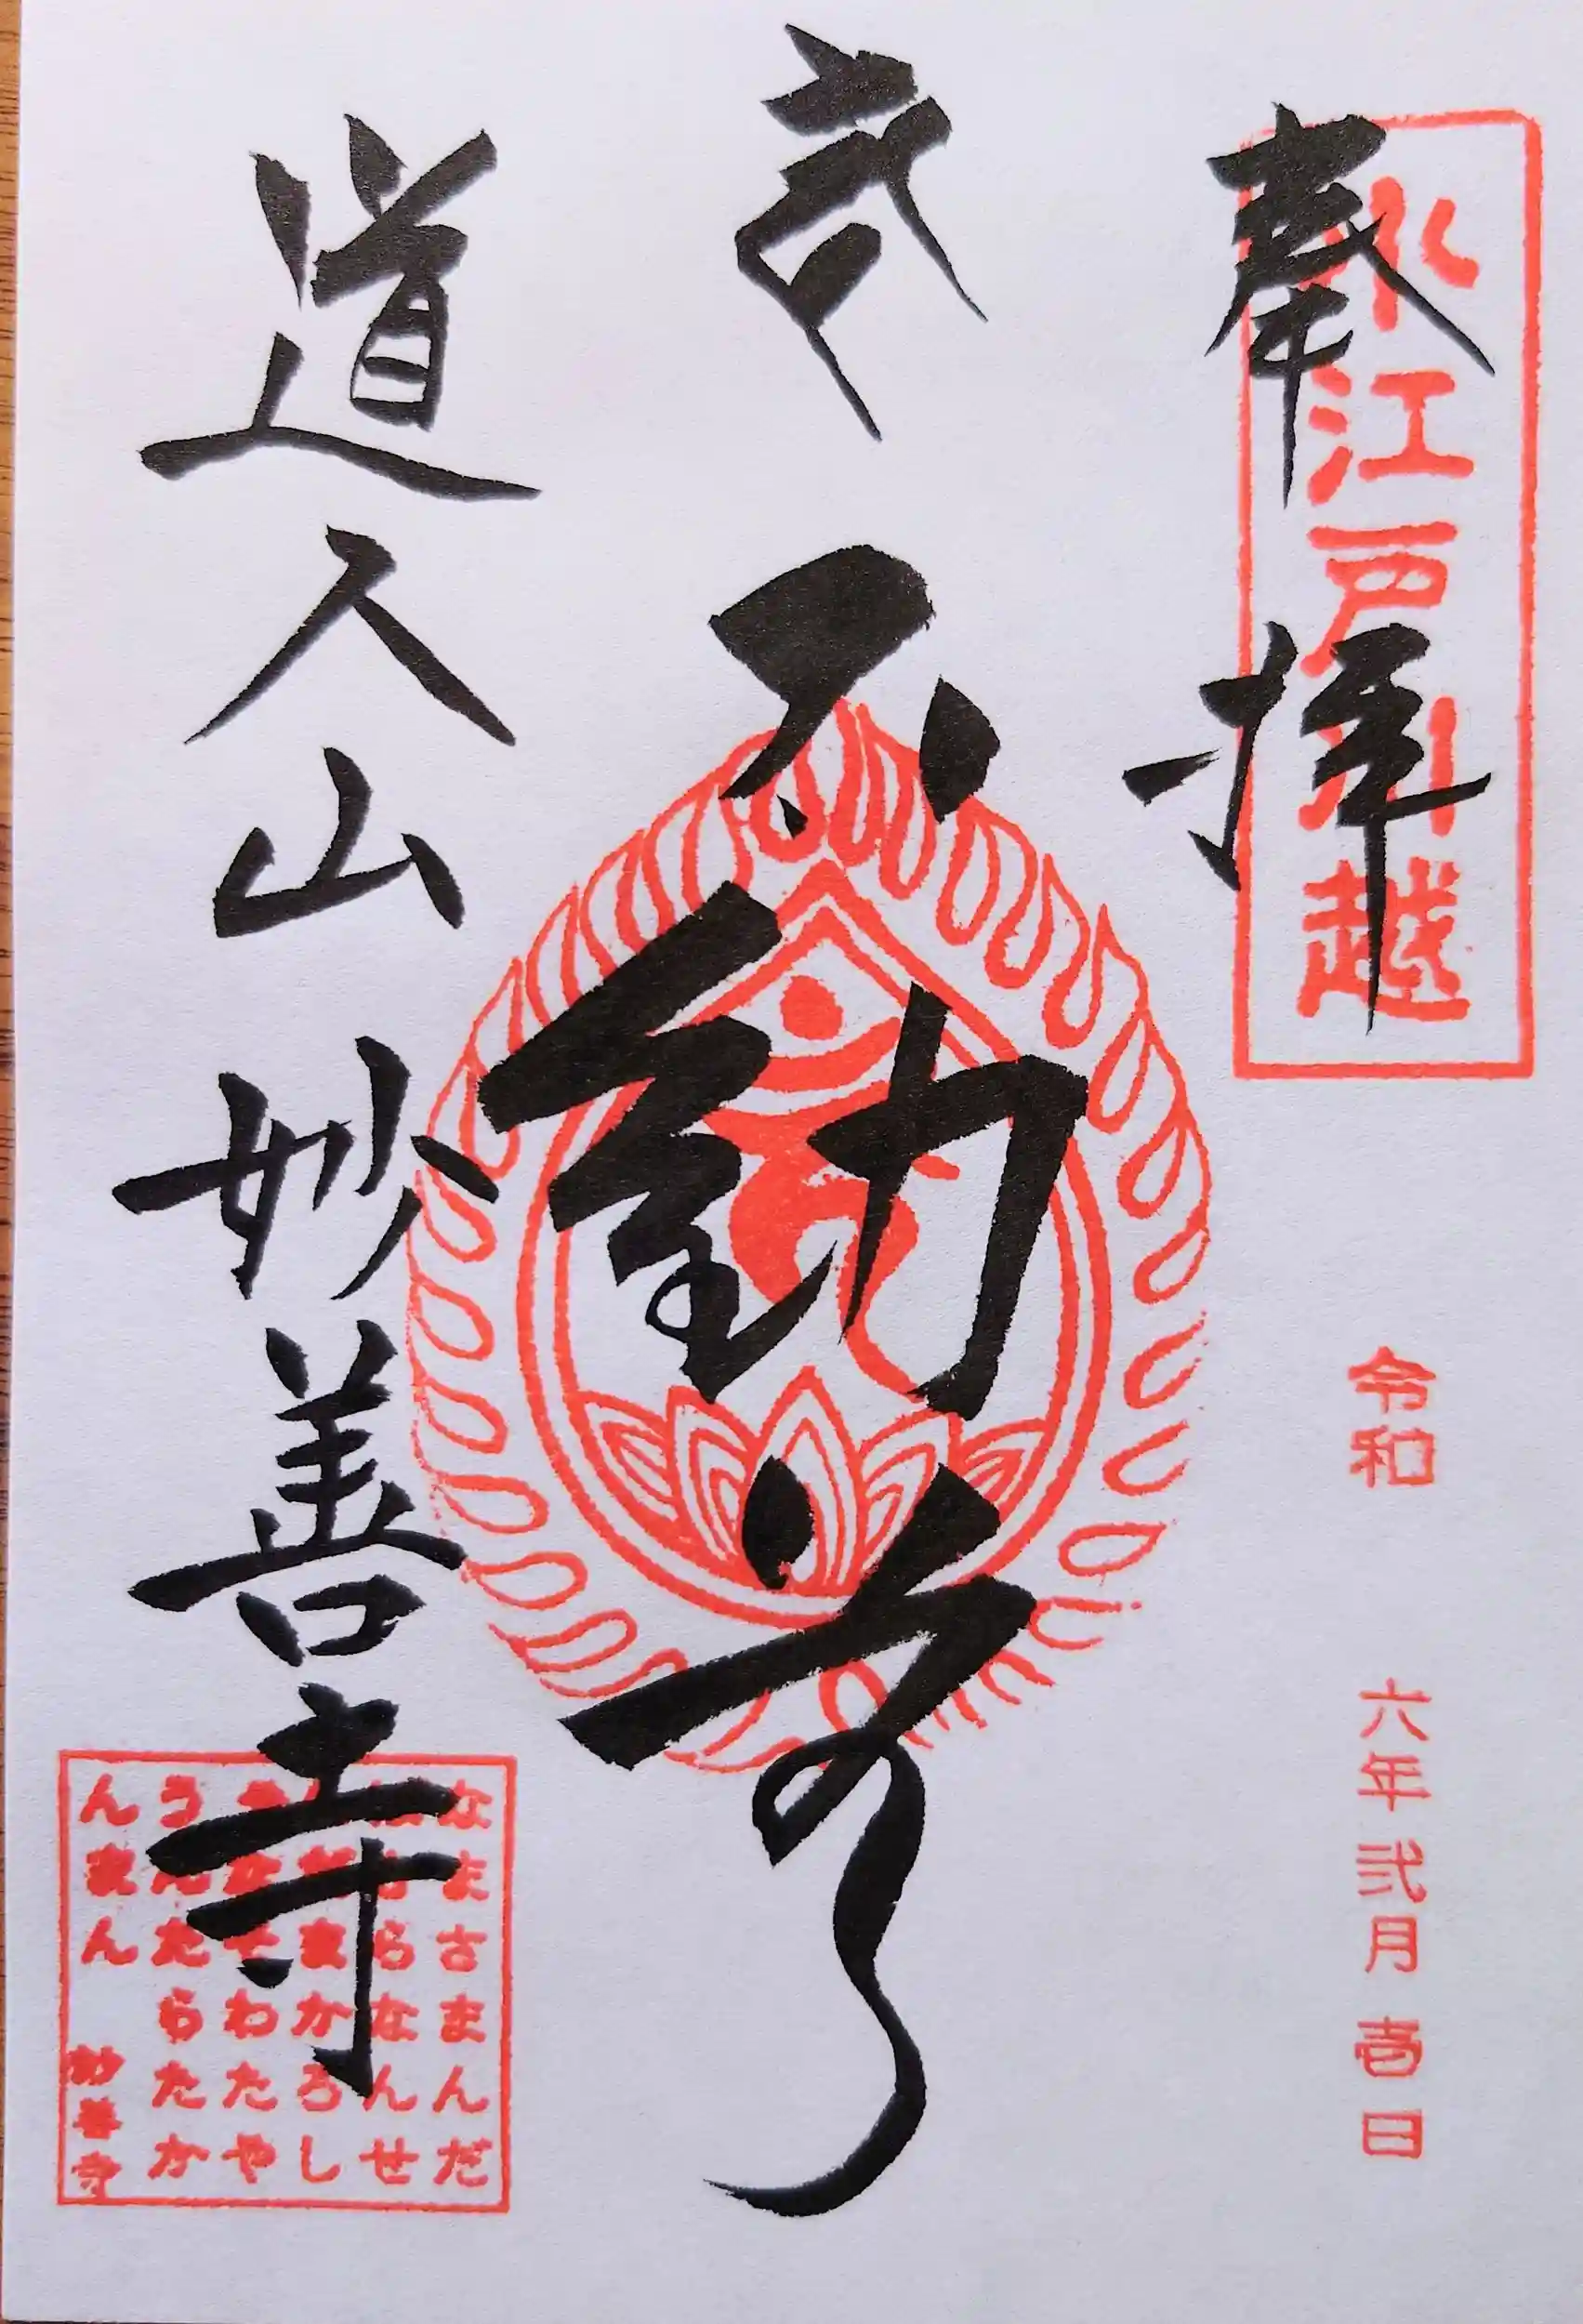 奉拝
小江戸川越
令和六年弐月壱日
不動尊
道人山妙善寺
なまさまんだ
ばさらなんせ
んだまかろし
やなそわたや
うんたらたか
んまん 妙善寺